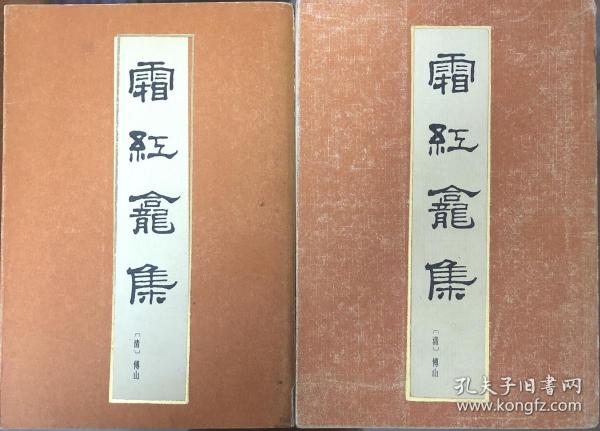 霜红龛集
〔清〕傅山
霜红龛集
〔清〕傅山
孔夫子旧书网
www.kongfz.com